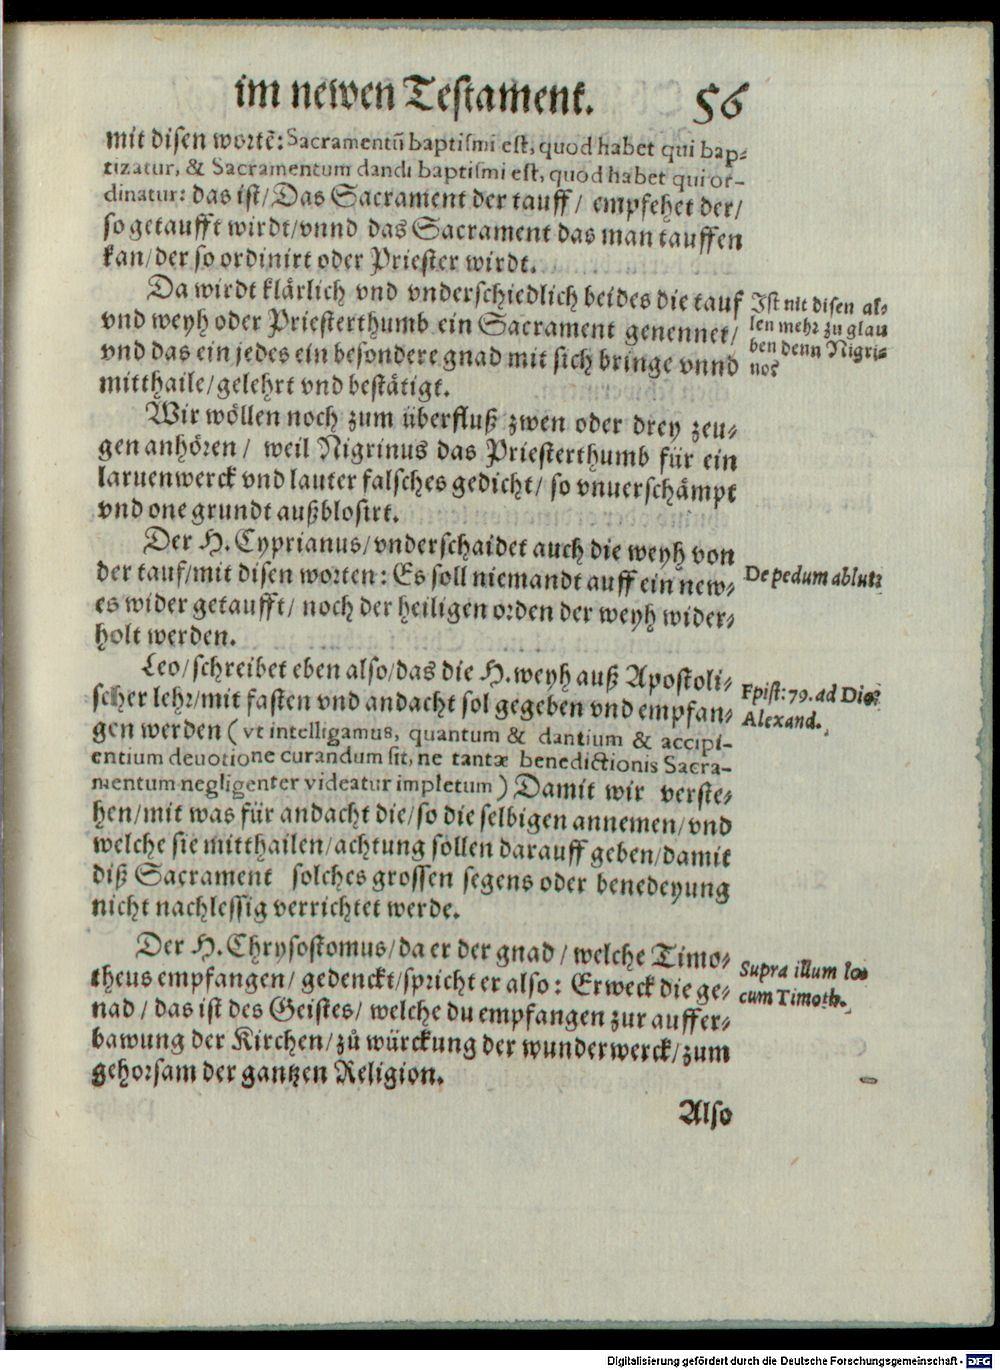 im newen Testament. 56
mit disen wortē: Sacramentū baptismi est, quod habet qui bap-
tizatur, & Sacramentum dandi baptismi est, quod habet qui or-
dinatur: das ist/ Das Sacrament der tauff/ empfehet der/
so getaufft wirdt/ vnnd das Sacrament das man tauffen
kan/ der so ordinirt oder Priester wirdt.
Da wirdt klärlich vnd vnderschiedlich beides die tauf
vnd weyh oder Priesterthumb ein Sacrament genennet/
vnd das ein jedes ein besondere gnad mit sich bringe vnnd
mitthaile/ gelehrt vnd bestätigt.
Ist nit disen al-
len mehr zu glau
ben denn Nigri-
no?
Wir wöllen noch zum überfluß zwen oder drey zeu-
gen anhören/ weil Nigrinus das Priesterthumb für ein
laruenwerck vnd lauter falsches gedicht/ so vnuerschämpt
vnd one grundt außblosirt.
Der H. Cyprianus/ vnderschaidet auch die weyh von
der tauf/ mit disen worten: Es soll niemandt auff ein new-
es wider getaufft/ noch der heiligen orden der weyh wider-
holt werden.
De pedum ablut:
Leo/ schreibet eben also/ das die H. weyh auß Apostoli-
scher lehr/ mit fasten vnd andacht sol gegeben vnd empfan-
gen werden ( vt intelligamus, quantum & dantium & accipi-
entium deuotione curandum sit, ne tantæ benedictionis Sacra-
mentum negligenter videatur impletum ) Damit wir verste-
hen/ mit was für andacht die/ so die selbigen annemen/ vnd
welche sie mitthailen/ achtung sollen darauff geben/ damit
diß Sacrament solches grossen segens oder benedeyung
nicht nachlessig verrichtet werde.
Epist: 79. ad Dios:
Alexand.
Der H. Chrysostomus/ da er der gnad/ welche Timo-
theus empfangen/ gedenckt/ spricht er also: Erweck die ge-
nad/ das ist des Geistes/ welche du empfangen zur auffer-
bawung der Kirchen/ zů würckung der wunderwerck/ zum
gehorsam der gantzen Religion.
Supra illum lo-
cum Timoth.
Also
Digitalisierung gefördert durch die Deutsche Forschungsgemeinschaft - DFG